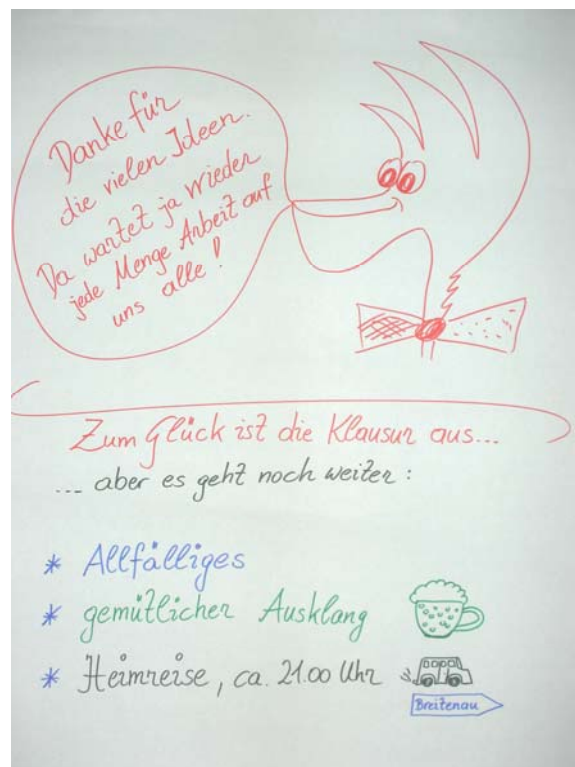 Danke für
die vielen Ideen.
Da wartet ja wieder
jede Menge Arbeit auf
uns alle!
Zum Glück ist die Klausur aus...
... aber es geht noch weiter:
* Allfälliges
* gemütlicher Ausklang
* Heimreise, ca. 21.00 Uhr
Breitenau